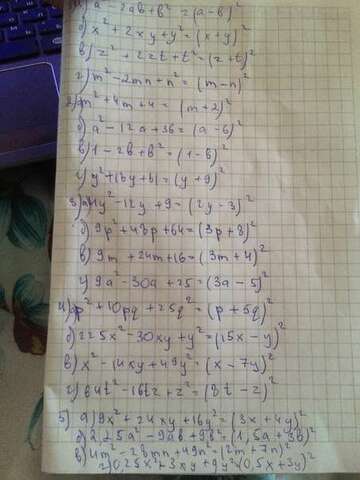 а) a² - 2ab + b² = (a - b)²
б) x² + 2xy + y² = (x + y)²
в) z² + 2zt + t² = (z + t)²
г) m² - 2mn + n² = (m - n)²
2) m² + 4m + 4 = (m + 2)²
б) a² - 12a + 36 = (a - 6)²
в) 1 - 2b + b² = (1 - b)²
г) y² + 18y + 81 = (y + 9)²
3) а) 4y² - 12y + 9 = (2y - 3)²
б) 9p² + 48p + 64 = (3p + 8)²
в) 9m + 24m + 16 = (3m + 4)²
г) 9a² - 30a + 25 = (3a - 5)²
4) p² + 10pq + 25q² = (p + 5q)²
б) 225x² - 30xy + y² = (15x - y)²
в) x² - 14xy + 49y² = (x - 7y)²
г) 64t² - 16tz + z² = (8t - z)²
5) а) 9x² + 24xy + 16y² = (3x + 4y)²
б) 2,25a² - 9ab + 9b² = (1,5a + 3b)²
в) 4m² - 28mn + 49n² = (2m + 7n)²
г) 0,25x² + 3xy + 9y² = (0,5x + 3y)²